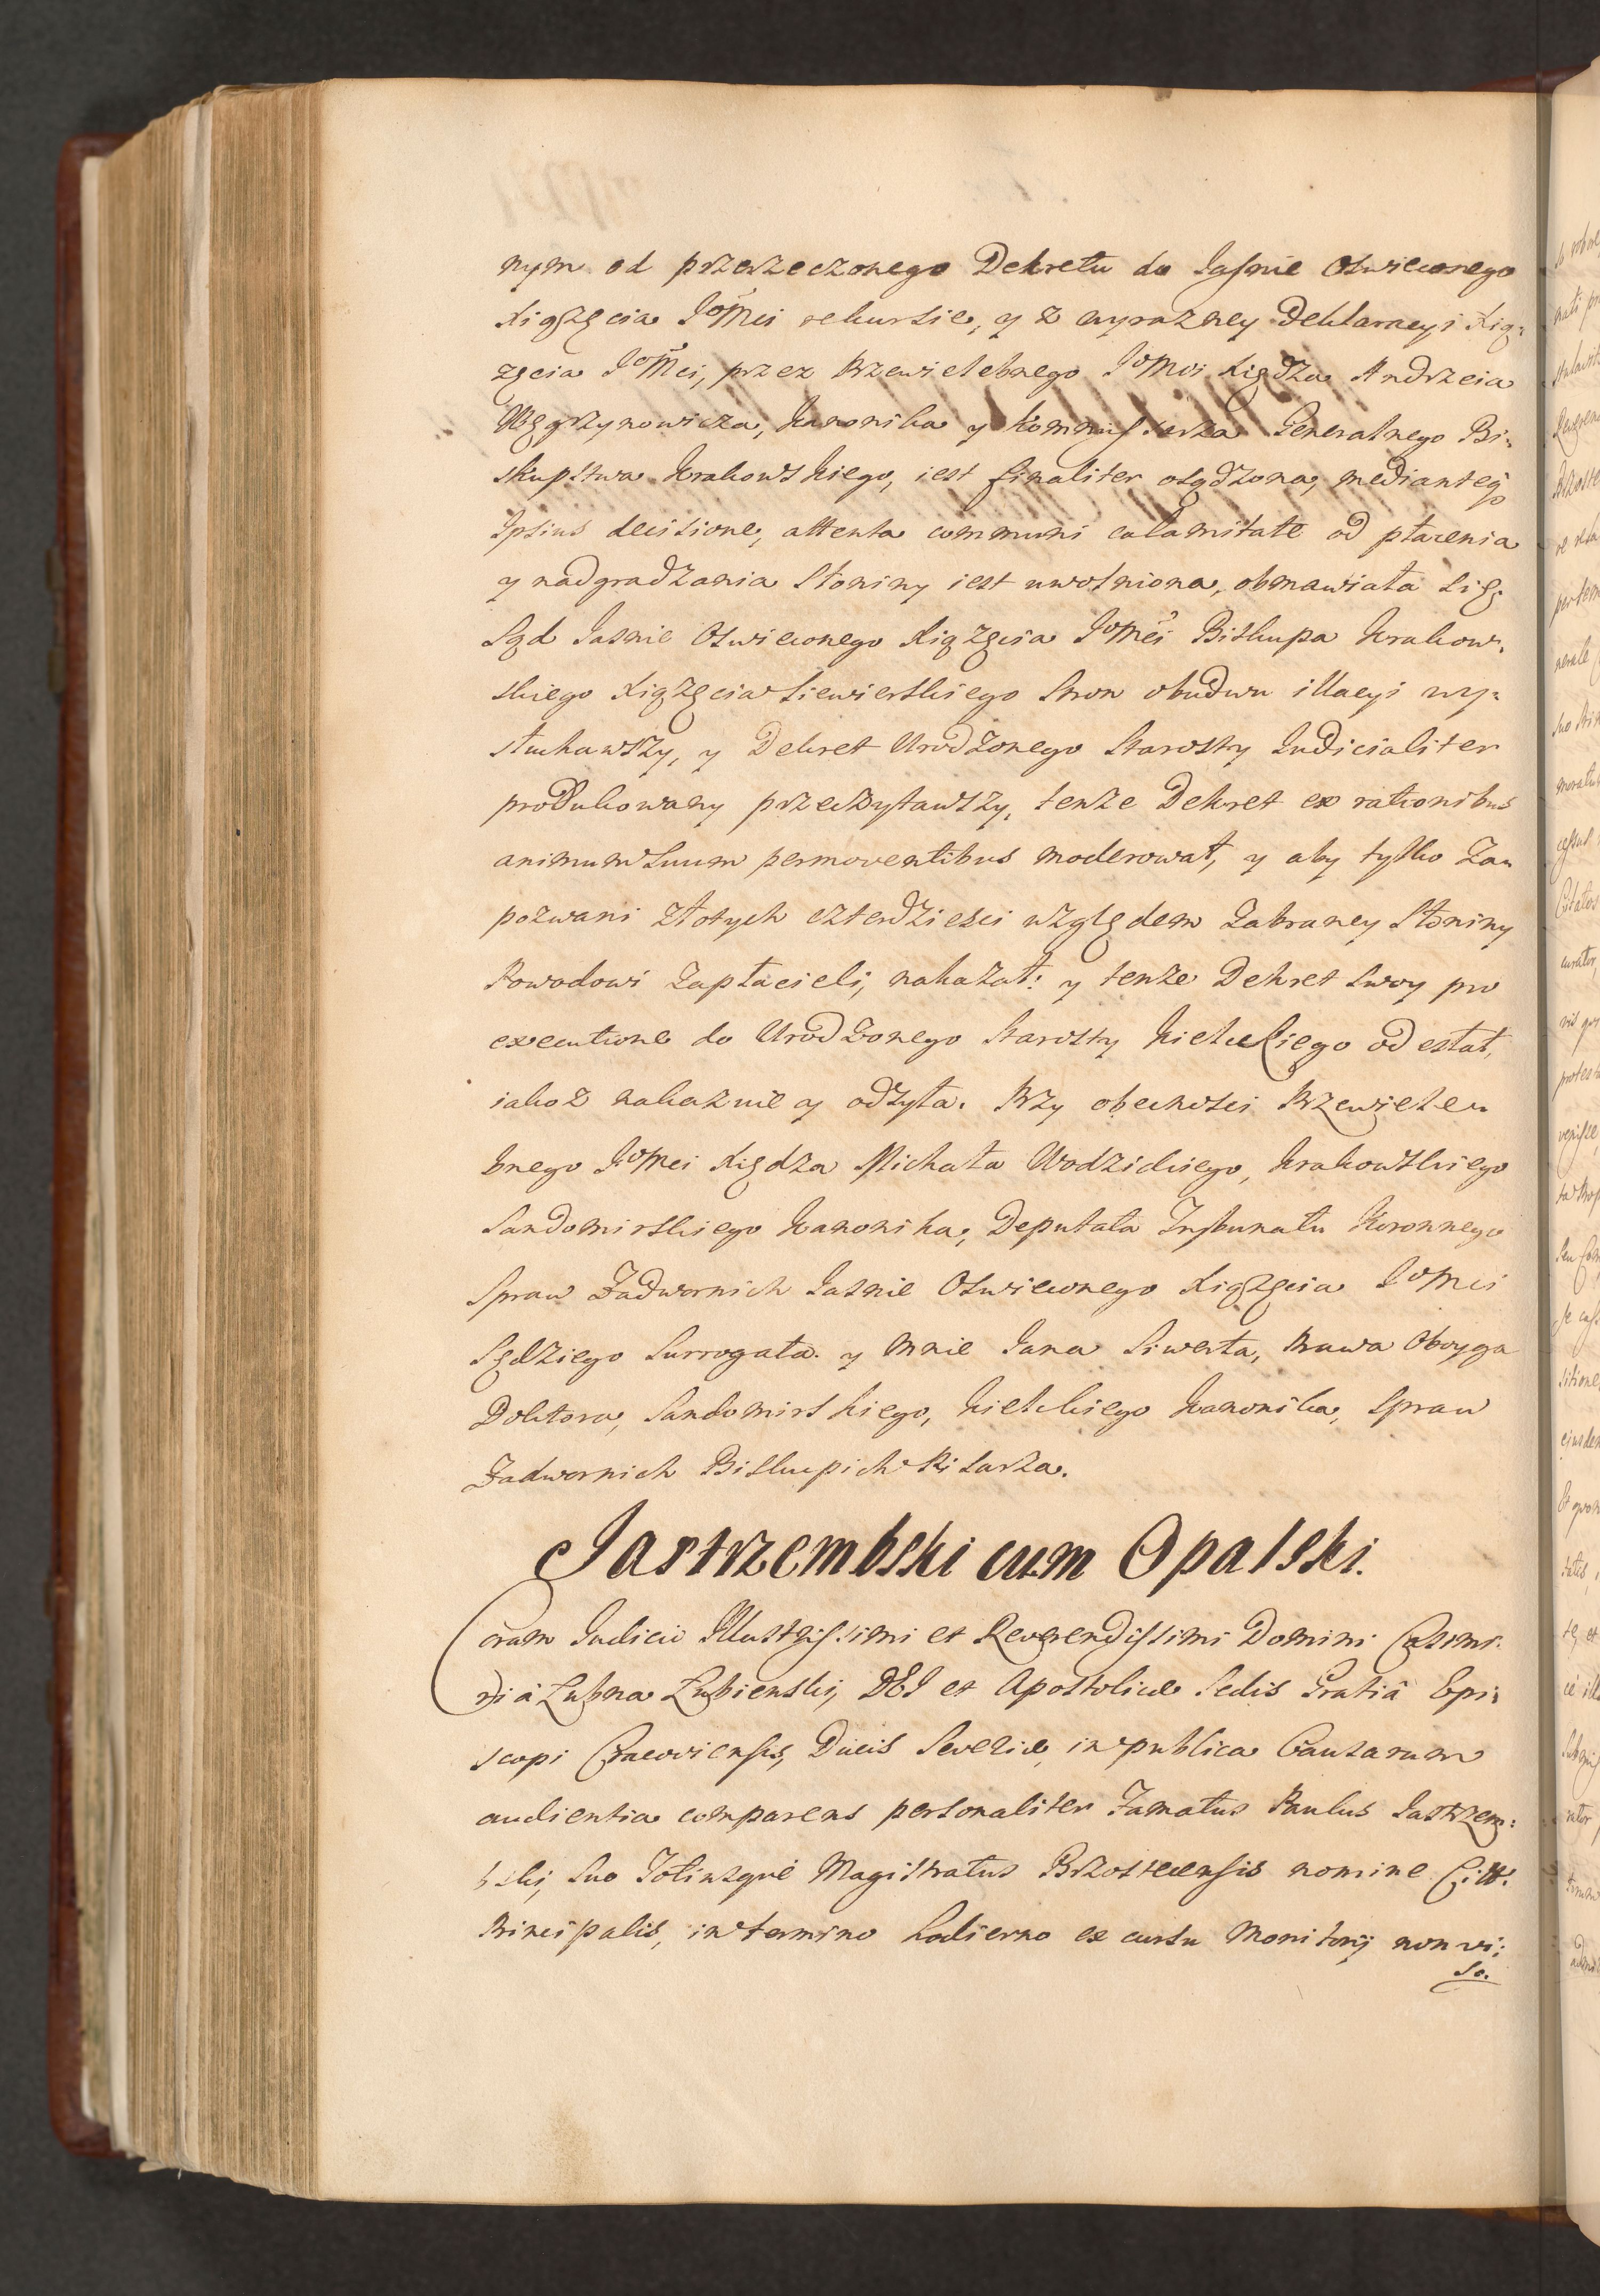 nym od przerzeczonego Dekretu do Jaśnie Oswieconego
Xiążęcia JoMci rekursie, y z wyrazney Deklaracyi Xią:
zęcia JoMci, przez Przewielebnego JoMci Xiędza Andrzeia
Węgrzynowicza, Kanonika y Kommissarza Generalnego Bi:
skupstwa Krakowskiego, iest finaliter osądzona, mediante
Ipsius decisione, attenta communi calamitate od płacenia
y nadgradzania Słoniny iest uwolniona, obmawiała się.
Sąd Jasnie Oswieconego Xiążęcia JoMci Biskupa Krakow:
skiego Xiążęcia Siewierskiego Stron obudwu illacyi wy:
słuchawszy, y Dekret Urodzonego Starosty Judicialiter
produkowany przeczytawszy, tenze Dekret ex rationibus
animum Suum permoventibus moderował, y aby tylko Za:
pozwani złotych czterdziesci względem Zabraney Słoniny
Powodowi Zapłacieli, nakazał: y tenze Dekret Swoy pro
executione do Urodzonego Starosty Kieleckiego odesłał,
iakoz nakazuie y odsyła. Przy obecności Przewiele:
bnego JoMci Xiędza Michała Wodzickiego, Krakowskiego
Sandomirskiego Kanonika, Deputata Trybunału Koronnego
Spraw Zadwornich Jasnie Oswieconego Xiążęcia JoMci
Sędziego Surrogata. y mnie Jana Siwerta, Prawa Oboyga
Doktora, Sandomirskiego, Kieleckiego Kanonika, Spraw
Zadwornich Biskupich Pisarza.
Jastrzembski cum Opalski.
Coram Judicio Illustrissimi et Reverendissimi Domini Casimi:
ri à Łubna Łubienski, DEI et Apostolicæ Sedis Gratiâ Epi:
scopi Cracoviensis, Ducis Severiæ, in publica Causarum
audientia comparens personaliter Famatus Paulus Jastrzem:
bski, Suo Totiusque Magistratus Brzostecensis nomine Citt.
Principalis, in termino hodierno ex cursu Monitorij non vi:
so.